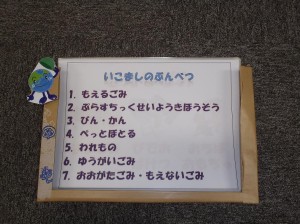 いこましのぶんべつ
1. もえるごみ
2. ぷらすちっくせいようきほうそう
3. びん・かん
4. ぺっとぼとる
5. われもの
6. ゆうがいごみ
7. おおがたごみ・もえないごみ